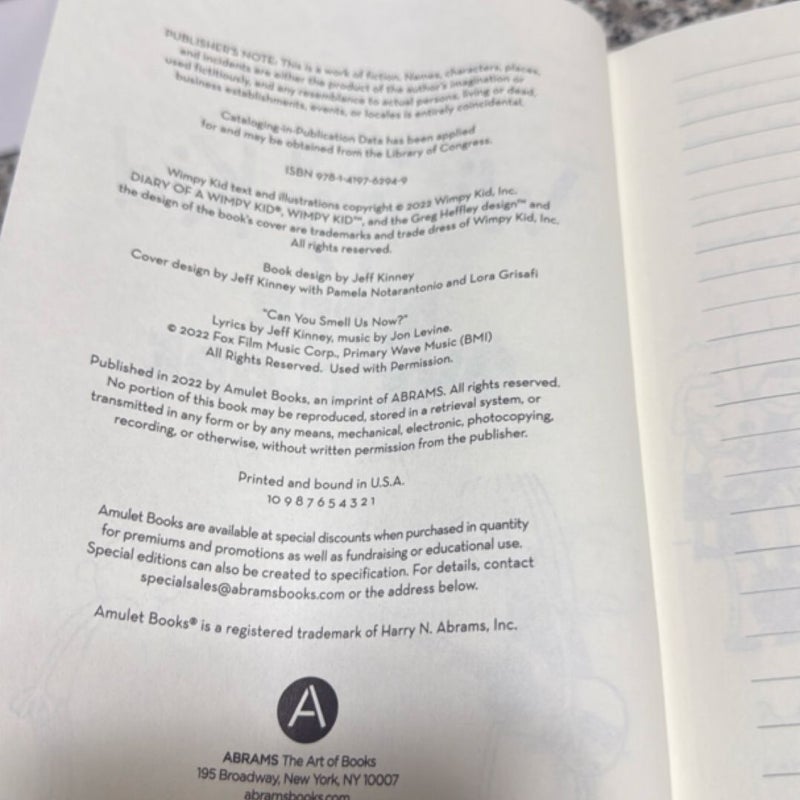 PUBLISHER'S NOTE: This is a work of fiction. Names, characters, places,
and incidents are either the product of the author's imagination or
used fictitiously, and any resemblance to actual persons, living or dead,
business establishments, events, or locales is entirely coincidental.
Cataloging-in-Publication Data has been applied
for and may be obtained from the Library of Congress.
ISBN 978-1-4197-6294-9
Wimpy Kid text and illustrations copyright © 2022 Wimpy Kid, Inc.
DIARY OF A WIMPY KID®, WIMPY KID™, and the Greg Heffley design™ and
the design of the book's cover are trademarks and trade dress of Wimpy Kid, Inc.
All rights reserved.
Book design by Jeff Kinney
Cover design by Jeff Kinney with Pamela Notarantonio and Lora Grisafi
"Can You Smell Us Now?"
Lyrics by Jeff Kinney, music by Jon Levine.
© 2022 Fox Film Music Corp., Primary Wave Music (BMI)
All Rights Reserved. Used with Permission.
Published in 2022 by Amulet Books, an imprint of ABRAMS. All rights reserved.
No portion of this book may be reproduced, stored in a retrieval system, or
transmitted in any form or by any means, mechanical, electronic, photocopying,
recording, or otherwise, without written permission from the publisher.
Printed and bound in U.S.A.
10 9 8 7 6 5 4 3 2 1
Amulet Books are available at special discounts when purchased in quantity
for premiums and promotions as well as fundraising or educational use.
Special editions can also be created to specification. For details, contact
specialsales@abramsbooks.com or the address below.
Amulet Books® is a registered trademark of Harry N. Abrams, Inc.
A
ABRAMS The Art of Books
195 Broadway, New York, NY 10007
abramsbooks.com